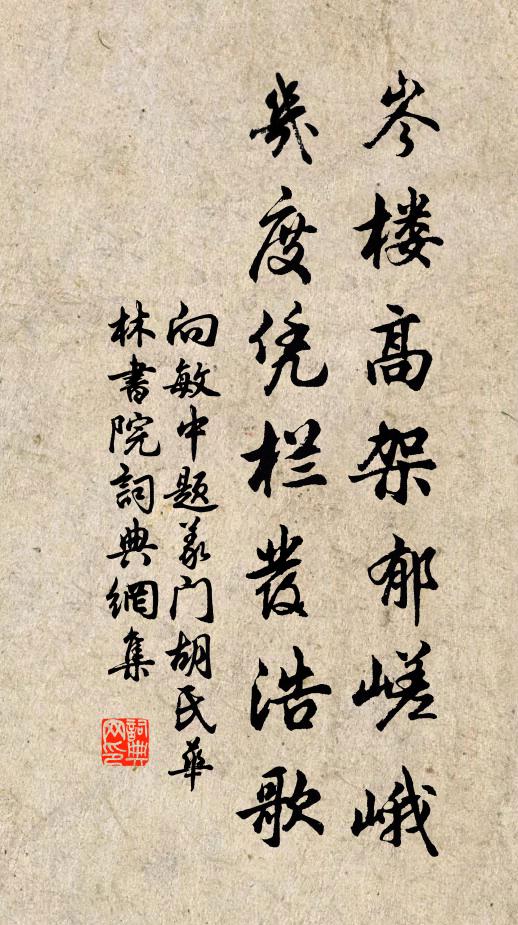 岑楼高架郁嵯峨
几度凭栏发浩歌
向敏中题义门胡氏华
林书院詞典網集
詞典网印